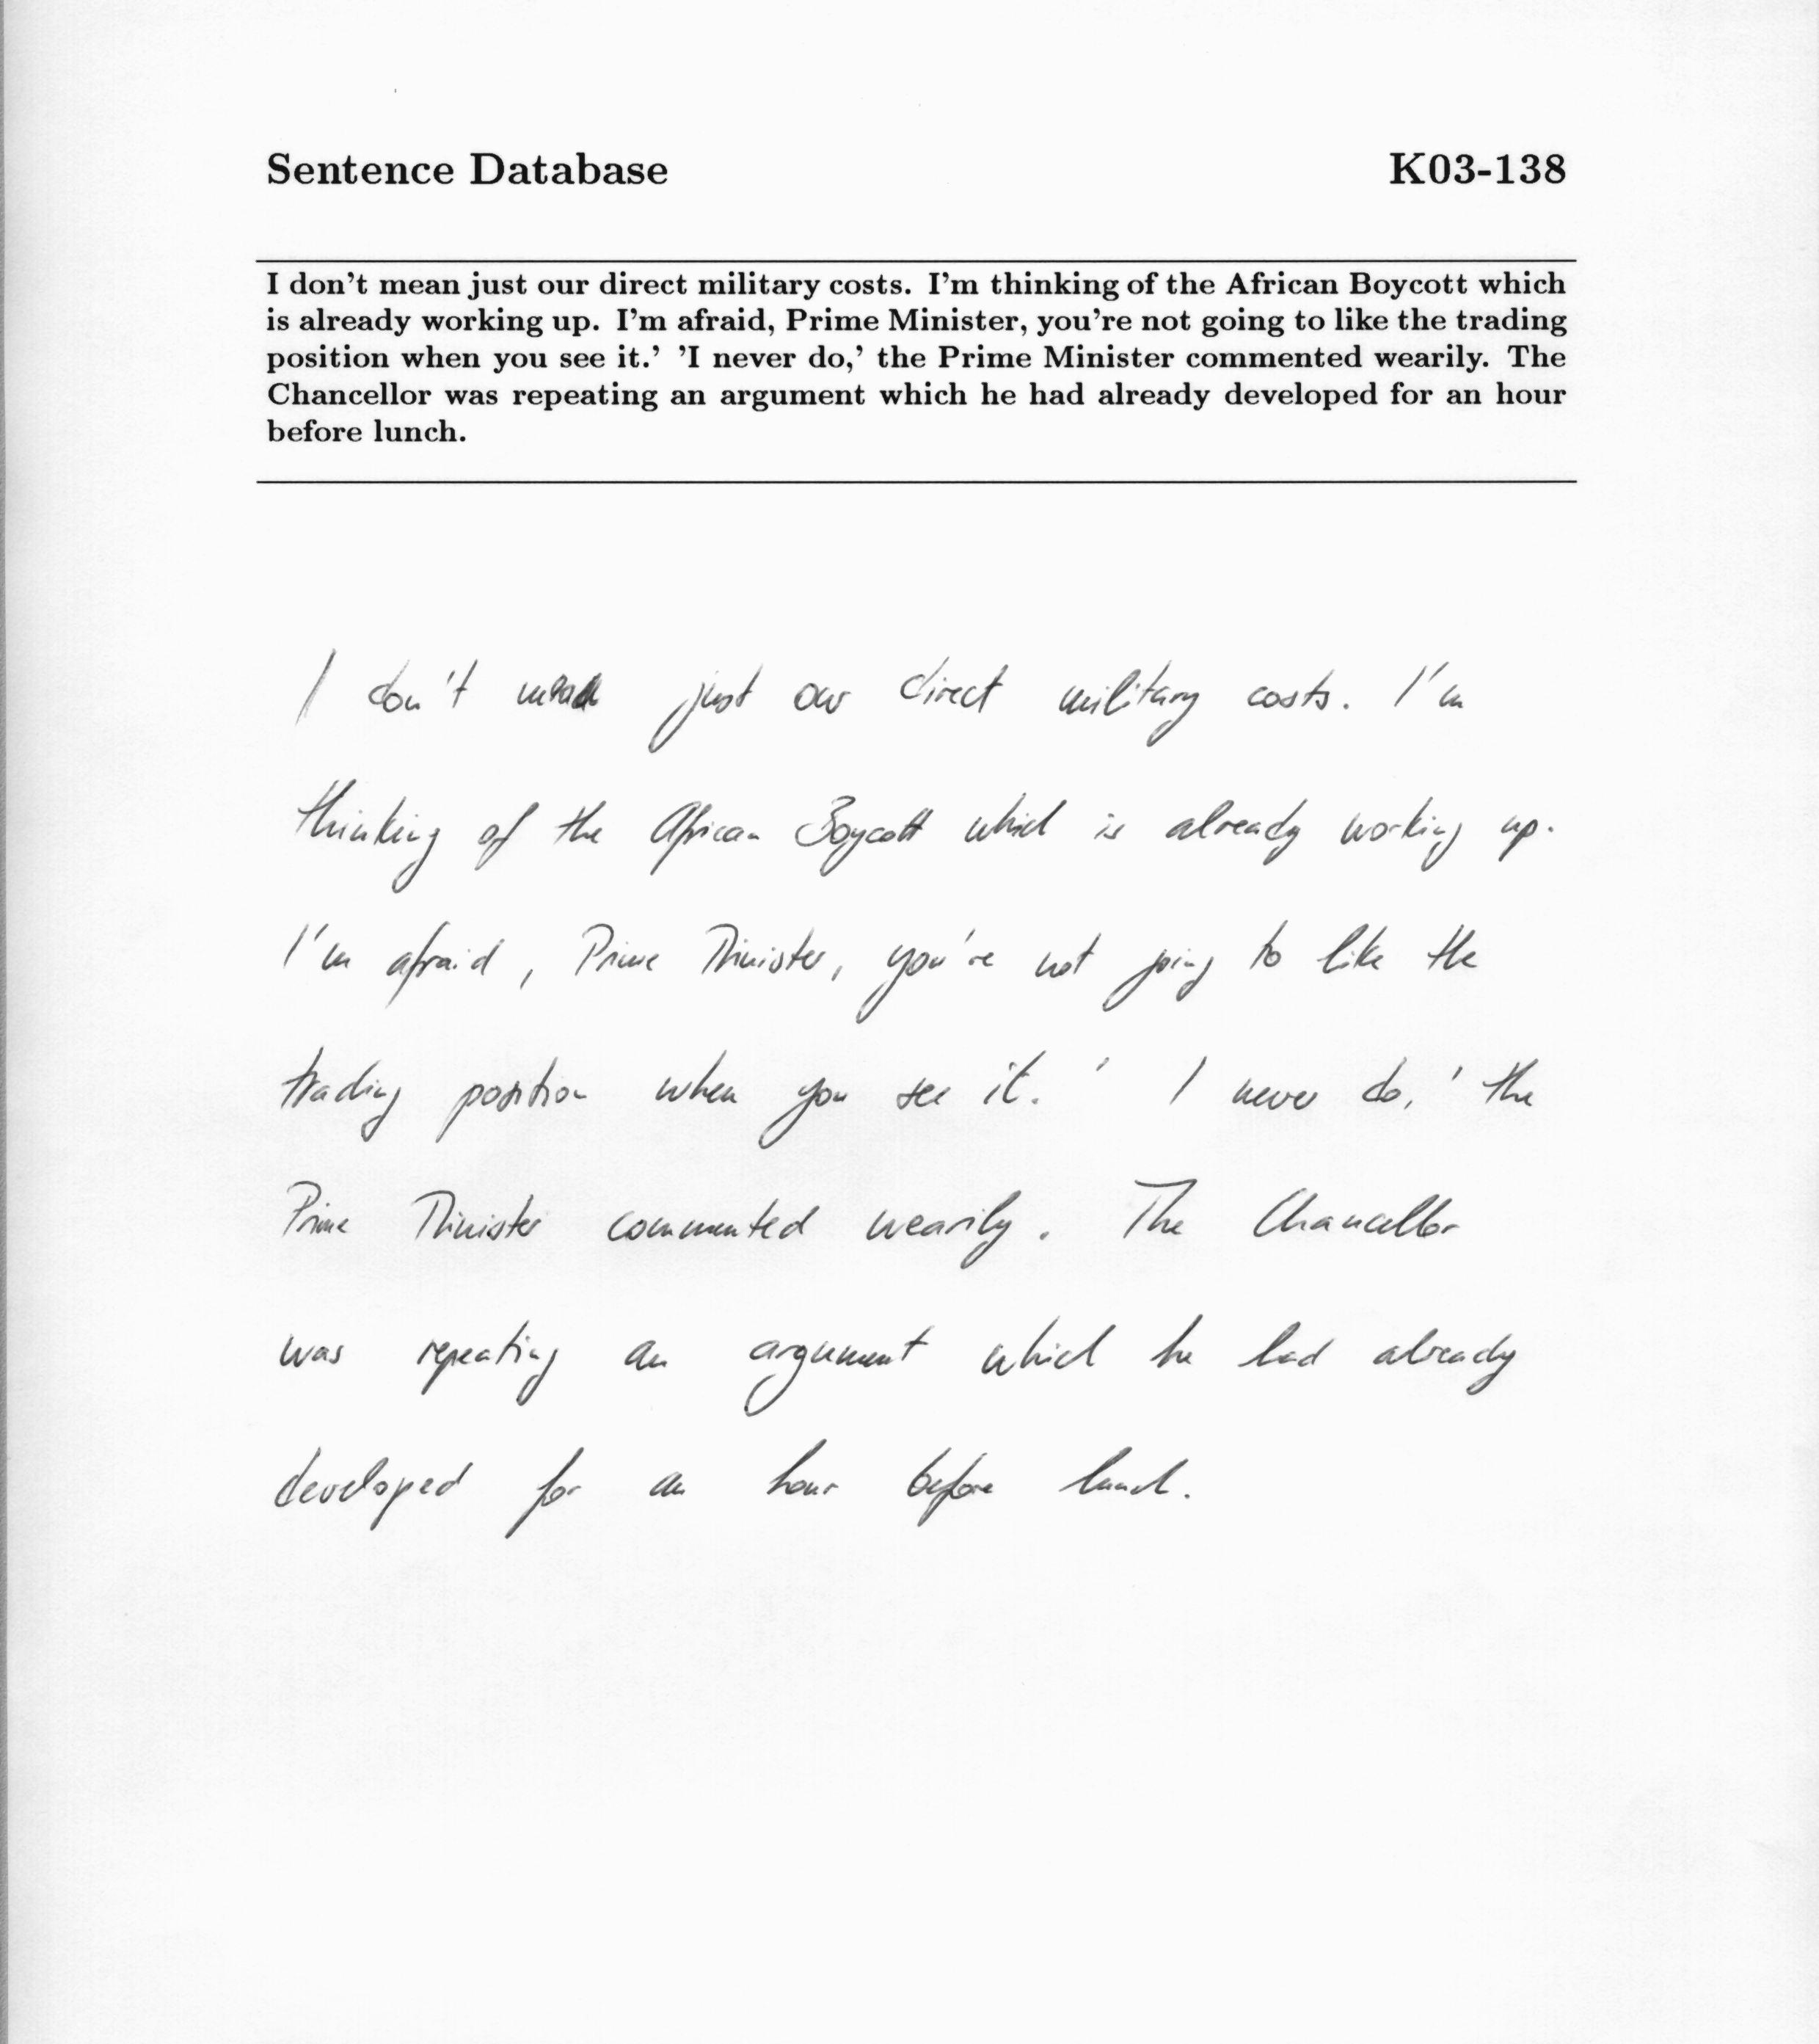 Sentence Database K03-138
I don't mean just our direct military costs. I'm thinking of the African Boycott which
is already working up. I'm afraid, Prime Minister, you're not going to like the trading
position when you see it.' 'I never do,' the Prime Minister commented wearily. The
Chancellor was repeating an argument which he had already developed for an hour
before lunch.
I don't mean just our direct military costs. I'm
thinking of the African Boycott which is already working up.
I'm afraid, Prime Minister, you're not going to like the
trading position when you see it.' I never do,' the
Prime Minister commented wearily. The Chancellor
was repeating an argument which he had already
developed for an hour before lunch.